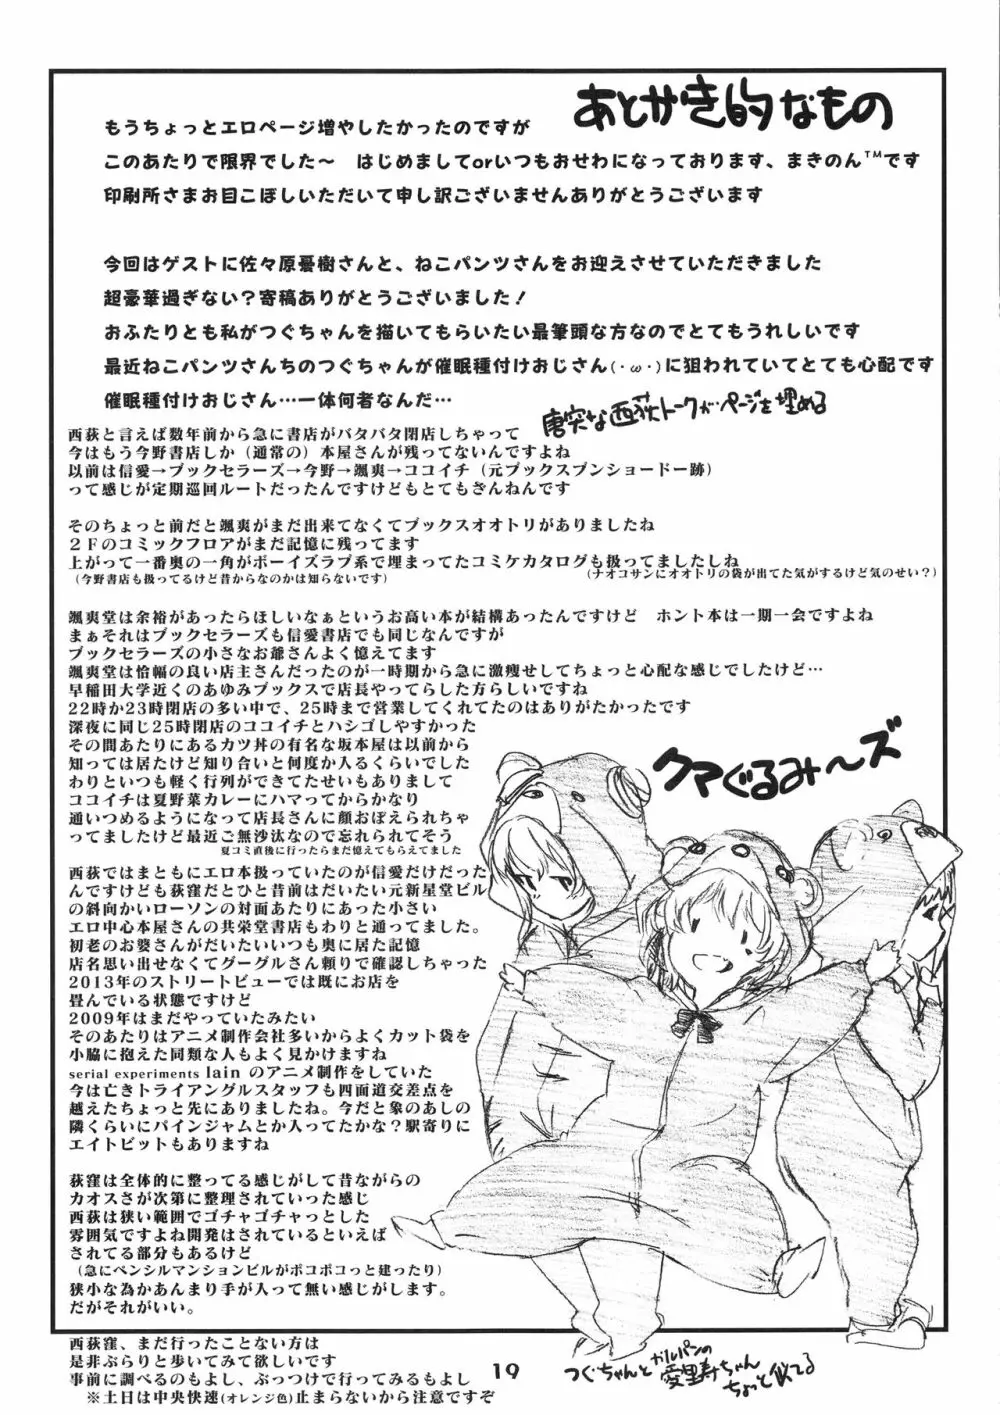 あとがき的なもの
もうちょっとエロページ増やしたかったのですが
このあたりで限界でした～　はじめましてorいつもおせわになっております、まきのん™です
印刷所さまお目こぼしいただいて申し訳ございませんありがとうございます
今回はゲストに佐々原憂樹さんと、ねこパンツさんをお迎えさせていただきました
超豪華過ぎない？寄稿ありがとうございました！
おふたりとも私がつぐちゃんを描いてもらいたい最筆頭な方なのでとてもうれしいです
最近ねこパンツさんちのつぐちゃんが催眠種付けおじさん(・ω・)に狙われていてとても心配です
催眠種付けおじさん…一体何者なんだ…
唐突な西荻トークがページを埋める
西荻と言えば数年前から急に書店がバタバタ閉店しちゃって
今はもう今野書店しか（通常の）本屋さんが残ってないんですよね
以前は信愛→ブックセラーズ→今野→颯爽→ココイチ（元ブックスブンショードー跡）
って感じが定期巡回ルートだったんですけどもとてもざんねんです
そのちょっと前だと颯爽がまだ出来てなくてブックスオオトリがありましたね
２Ｆのコミックフロアがまだ記憶に残ってます
上がって一番奥の一角がボーイズラブ系で埋まってたコミケカタログも扱ってましたしね
（今野書店も扱ってるけど昔からなのかは知らないです）
（ナオコサンにオオトリの袋が出てた気がするけど気のせい？）
颯爽堂は余裕があったらほしいなぁというお高い本が結構あったんですけど　ホント本は一期一会ですよね
まぁそれはブックセラーズも信愛書店でも同じなんですが
ブックセラーズの小さなお爺さんよく憶えてます
颯爽堂は恰幅の良い店主さんだったのが一時期から急に激痩せしてちょっと心配な感じでしたけど…
早稲田大学近くのあゆみブックスで店長やってらした方らしいですね
22時か23時閉店の多い中で、25時まで営業してくれてたのはありがたかったです
深夜に同じ25時閉店のココイチとハシゴしやすかった
その間あたりにあるカツ丼の有名な坂本屋は以前から
知っては居たけど知り合いと何度か入るくらいでした
わりといつも軽く行列ができてたせいもありまして
ココイチは夏野菜カレーにハマってからかなり
通いつめるようになって店長さんに顔おぼえられちゃ
ってましたけど最近ご無沙汰なので忘れられてそう
夏コミ直後に行ったらまだ憶えてもらえてました
クマぐるみ～ズ
西荻ではまともにエロ本扱っていたのが信愛だけだった
んですけども荻窪だとひと昔前はだいたい元新星堂ビル
の斜向かいローソンの対面あたりにあった小さい
エロ中心本屋さんの共栄堂書店もわりと通ってました。
初老のお婆さんがだいたいいつも奥に居た記憶
店名思い出せなくてグーグルさん頼りで確認しちゃった
2013年のストリートビューでは既にお店を
畳んでいる状態ですけど
2009年はまだやっていたみたい
そのあたりはアニメ制作会社多いからよくカット袋を
小脇に抱えた同類な人もよく見かけますね
serial experiments lain のアニメ制作をしていた
今は亡きトライアングルスタッフも四面道交差点を
越えたちょっと先にありましたね。今だと象のあしの
隣くらいにパインジャムとか入ってたかな？駅寄りに
エイトビットもありますね
荻窪は全体的に整ってる感じがして昔ながらの
カオスさが次第に整理されていった感じ
西荻は狭い範囲でゴチャゴチャっとした
雰囲気ですよね開発はされているといえば
されてる部分もあるけど
（急にペンシルマンションビルがボコボコっと建ったり）
狭小な為かあんまり手が入って無い感じがします。
だがそれがいい。
西荻窪、まだ行ったことない方は
是非ぶらりと歩いてみて欲しいです
事前に調べるのもよし、ぶっつけで行ってみるもよし
※土日は中央快速(オレンジ色)止まらないから注意ですぞ
19
つぐちゃんとガルパンの
愛里寿ちゃん
ちょっと似てる